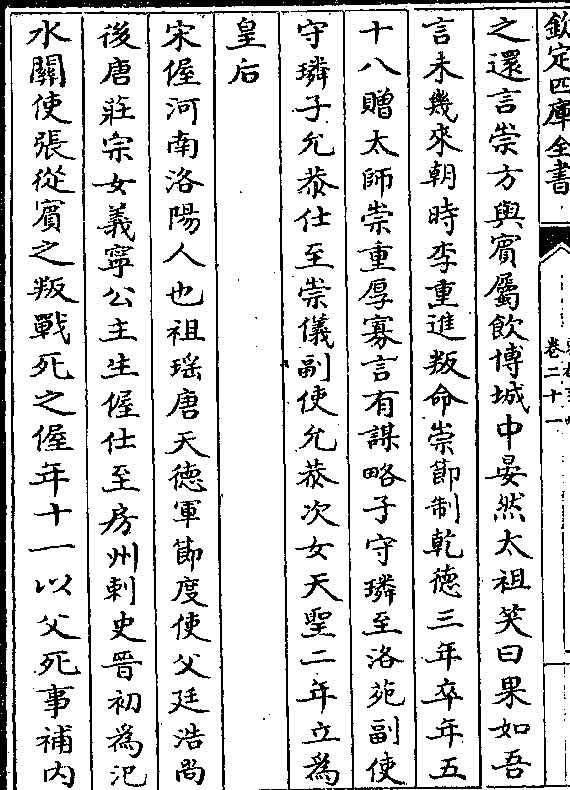 欽定四庫全書
卷二十一
之還言崇方與賓屬飲博城中晏然太祖笑曰果如吾
言未幾來朝時李重進叛命崇節制乾德三年卒年五
十八贈太師崇重厚寡言有謀略子守璘至洛苑副使
守璘子允恭仕至崇儀副使允恭次女天聖二年立為
皇后
宋偓河南洛陽人也祖瑶唐天德軍節度使父廷浩尚
後唐莊宗女義寧公主生偓仕至房州刺史晉初為汜
水關使張從賓之叛戰死之偓年十一以父死事補内